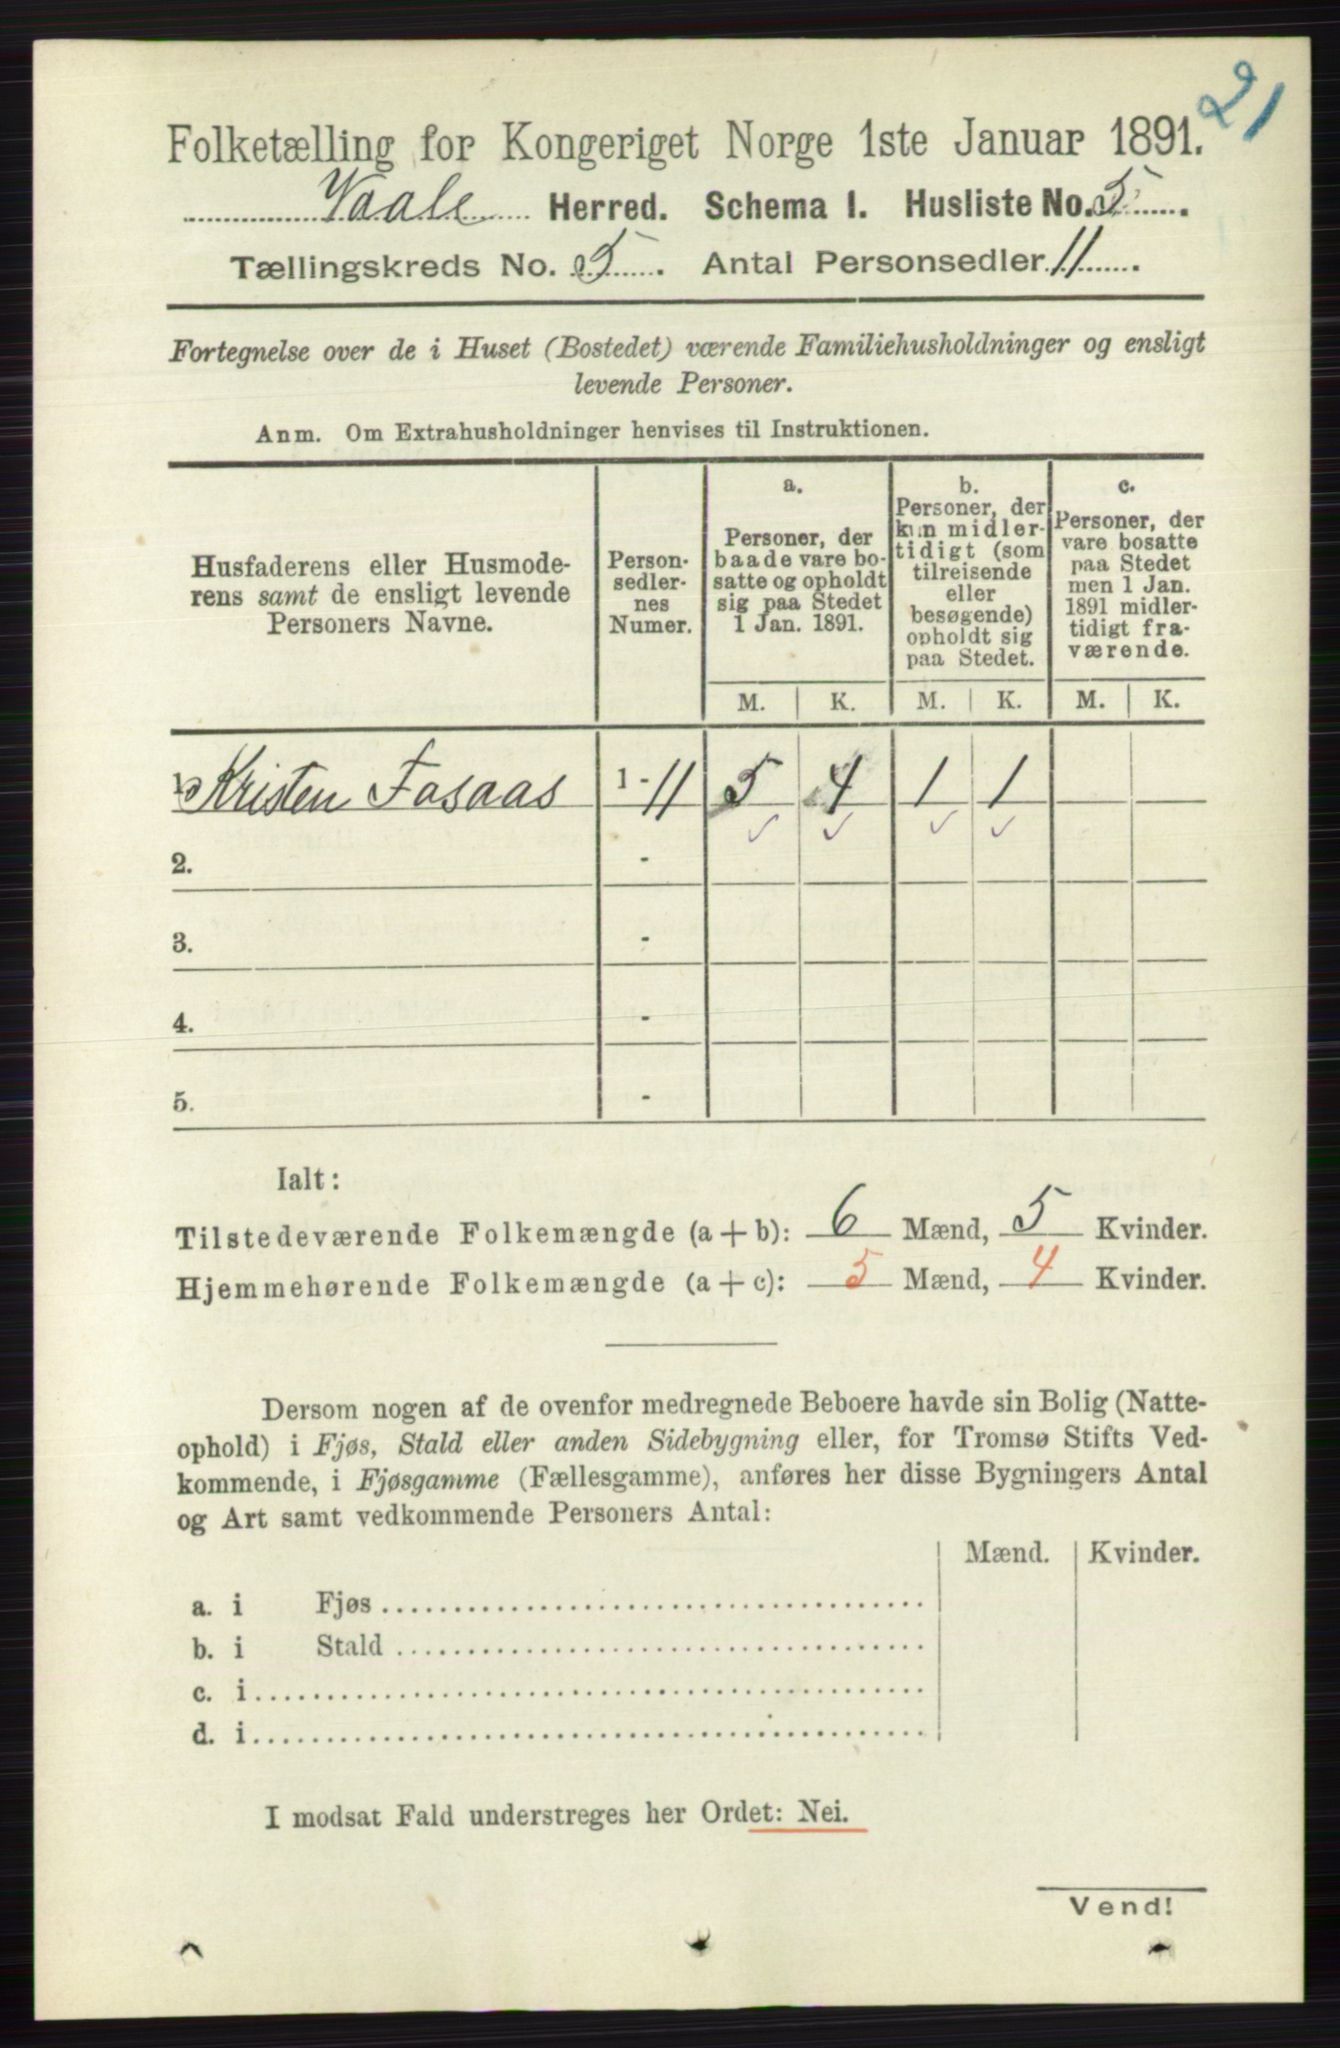 21
Folketælling for Kongeriget Norge 1ste Januar 1891.
Vaale Herred. Schema 1. Husliste No. 5.
Tællingskreds No. 5. Antal Personsedler 11.
Fortegnelse over de i Huset (Bostedet) værende Familiehusholdninger og ensligt
levende Personer.
Anm. Om Extrahusholdninger henvises til Instruktionen.
Husfaderens eller Husmode-
rens samt de ensligt levende
Personers Navne.
Person-
sedler-
nes
Numer.
a.
Personer, der
baade vare bo-
satte og opholdt
sig paa Stedet
1 Jan. 1891.
b.
Personer, der
kun midler-
tidigt (som
tilreisende
eller
besøgende)
opholdt sig
paa Stedet.
c.
Personer, der
vare bosatte
paa Stedet
men 1 Jan.
1891 midler-
tidigt fra-
værende.
M. K. M. K. M. K.
1. Kristen Fasaas 1 - 11 5 4 1 1
2. -
3. -
4. -
5. -
Ialt:
Tilstedeværende Folkemængde (a + b): 6 Mænd, 5 Kvinder.
Hjemmehørende Folkemængde (a + c): 5 Mænd, 4 Kvinder.
Dersom nogen af de ovenfor medregnede Beboere havde sin Bolig (Natte-
ophold) i Fjøs, Stald eller anden Sidebygning eller, for Tromsø Stifts Ved-
kommende, i Fjøsgamme (Fællesgamme), anføres her disse Bygningers Antal
og Art samt vedkommende Personers Antal:
Mænd. Kvinder.
a. i Fjøs
b. i Stald
c. i
d. i
I modsat Fald understreges her Ordet: Nei.
Vend!